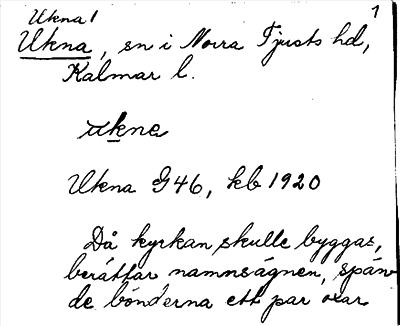 Ukna 1
1
Ukna, sn i Norra Tjusts hd,
Kalmar l.
ukne
Ukna G46, kb 1920
Då kyrkan skulle byggas,
berättar namnsägnen, spän-
de bönderna ett par oxar